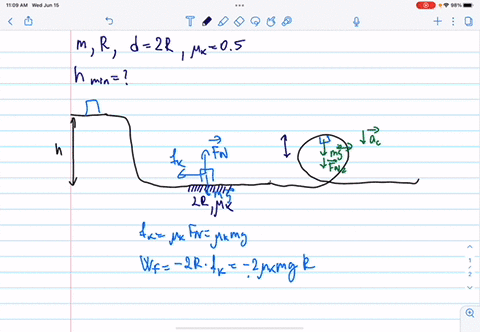 11:09 AM Wed Jun 15
98%
m, R, d = 2R, μk = 0.5
h min = ?
h
fk
FN
mg
FN
ac
2R, μk
fk = μk FN = μk mg
Wf = -2R · fk = -2μk mg R
1
2